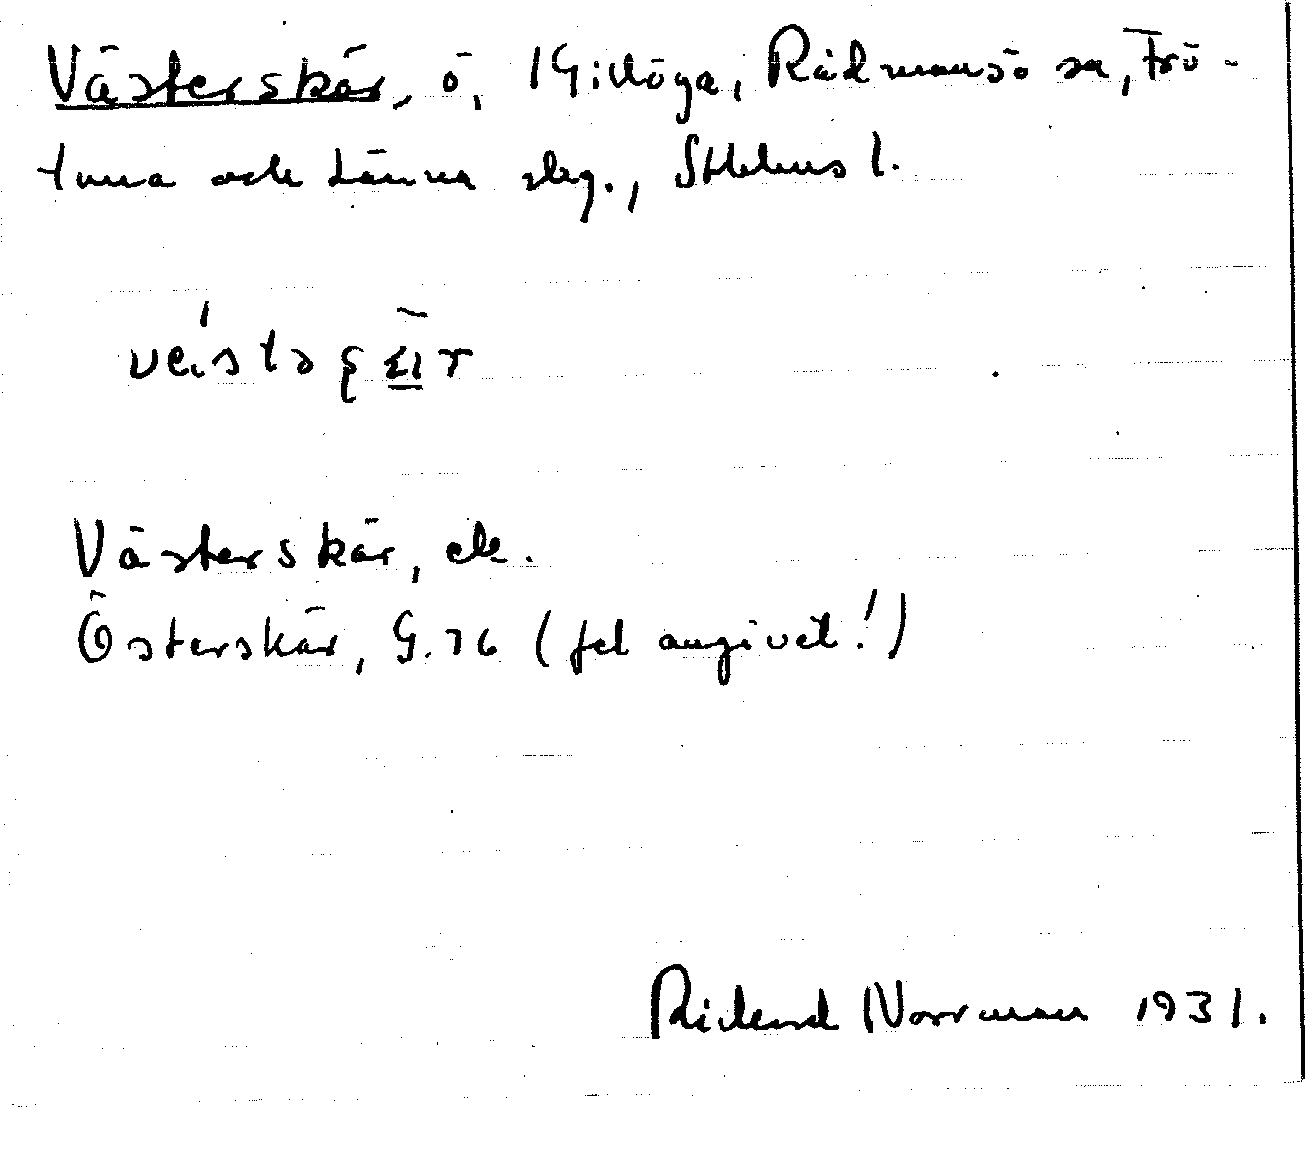 Västerskär, ö, Gillöga, Rådmansö sn, Frö-
tuna och Länna skg., Sthlms l.
Västerskär, ek.
Österskär, G. 76 (fel angivet!)
Rickard Norrman 1931.